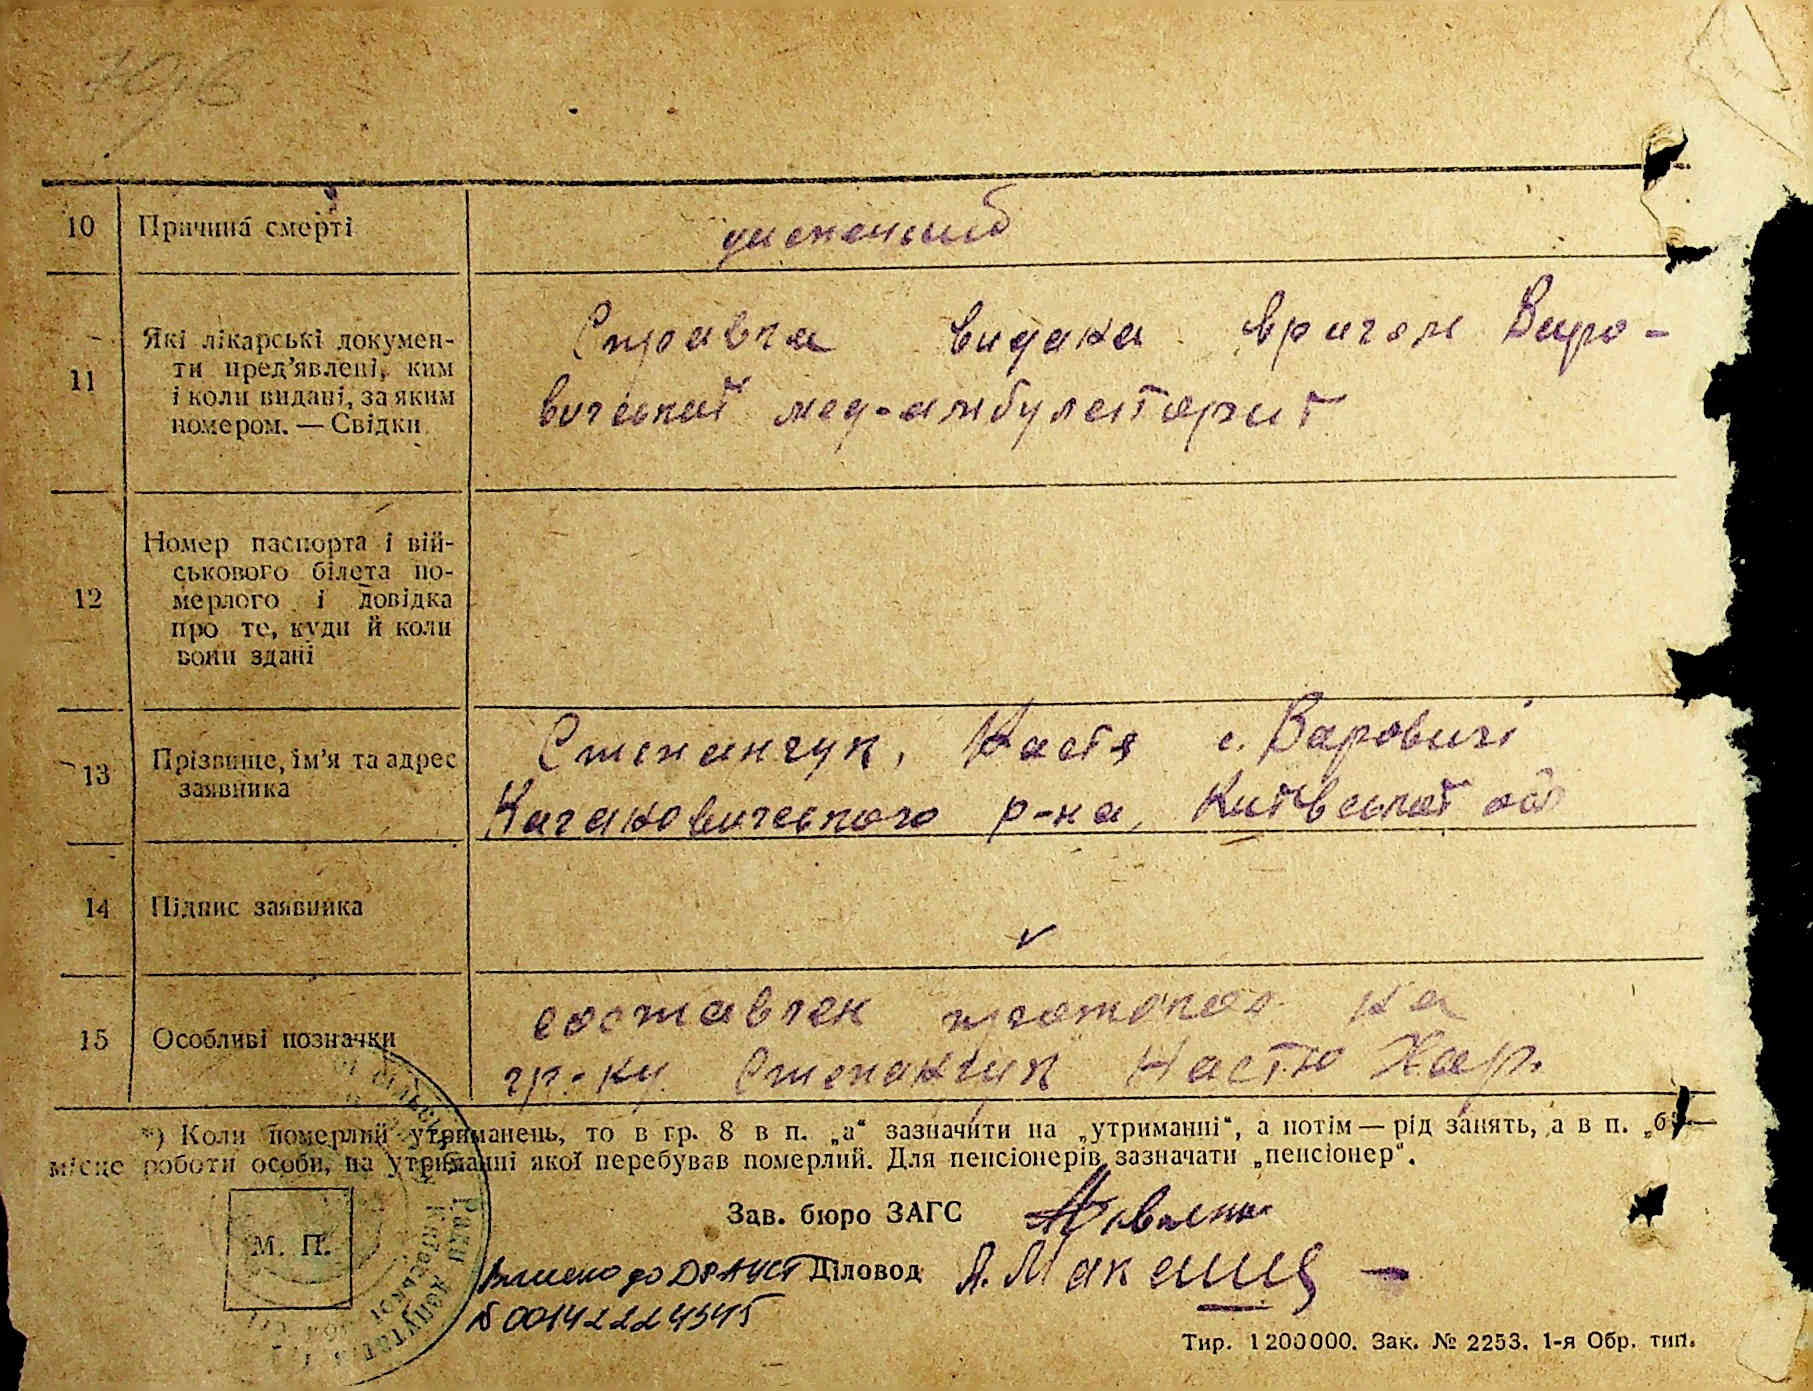 10 Причина смерті
11 Які лікарські докумен-
ти пред'явлені, ким
і коли видані, за яким
номером. — Свідки
Справка видана врачом Варо-
вичської мед-амбулаторії
12 Номер паспорта і вій-
ськового білета по-
мерлого і довідка
про те, куди й коли
вони здані
13 Прізвище, ім'я та адрес
заявника
Степанчук, Настя с. Варовичі
Кагановичського р-на, Київської об
14 Підпис заявника
15 Особливі позначки
составлен протокол на
гр-ку Степанчук Настю Хар.
*) Коли померлий утриманець, то в гр. 8 в п. „а“ зазначити на „утриманні“, а потім — рід занять, а в п. „б“ —
місце роботи особи, на утриманні якої перебував померлий. Для пенсіонерів зазначати „пенсіонер“.
Зав. бюро ЗАГС
М. П.
Внесено до ДРАЦСГ Діловод
№ 00142224545
Тир. 1200000. Зак. № 2253. 1-я Обр. тип.